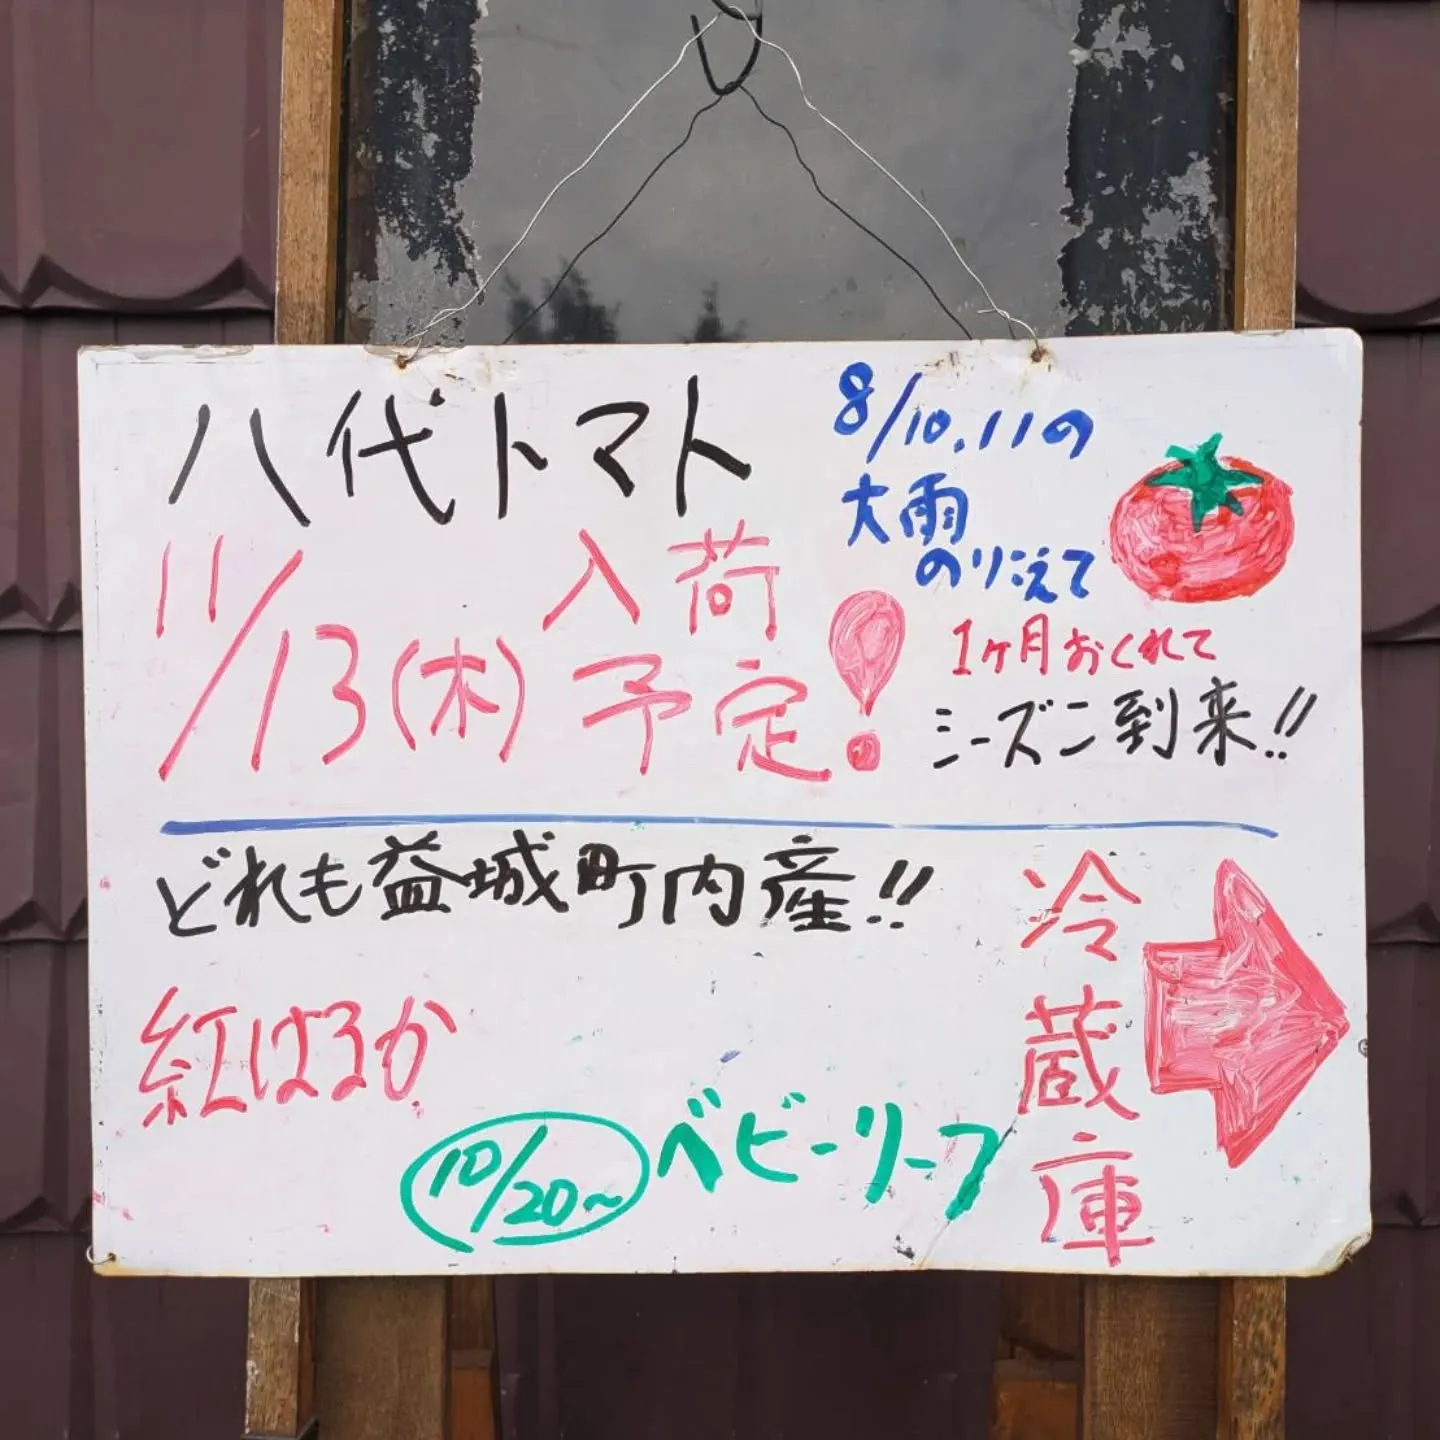 八代トマト
11/13(木)
入荷
予定!
8/10.11の
大雨
のりこえて
1ヶ月おくれて
シーズン到来!!
どれも益城町内産!!
紅はるか
10/20~
ベビーリーフ
冷蔵庫